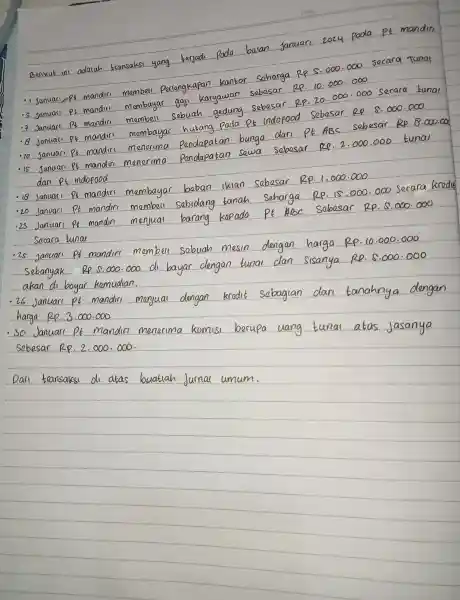 Berikut ini adalah transaksi yang terjadi Pada bulan januari 2024 pada Pt mandiri
• 1 Januari Pt mandiri membeli Perlengkapan kantor seharga Rp 5.000.000 secara Tunai
• 5 Januari Pt mandiri membayar gaji karyawan sebesar Rp. 10.000.000
• 7 Januari Pt mandiri membeli sebuah gedung sebesar RP. 20.000.000 secara tunai
• 8 Januari Pt mandiri membayar hutang Pada Pt Indofood Sebesar Rp 8.000.000
• 10 Januari Pt mandiri menerima Pendapatan bunga dari Pt ABC sebesar Rp
• 15 Januari Pt mandiri menerima Pendapatan Sewa Sebesar Rp. 2.000.000 tunai
dari Pt Indofood
• 18 Januari Pt mandiri membayar beban iklan Sebesar RP. 1.000.000
• 20 Januari Pt mandiri membeli sebidang tanah Seharga RP. 15.000.000 Secara kredit
• 23 Januari Pt mandiri menjual barang kepada Pt ABC Sebesar RP. 5.000.000
Secara tunai
• 25 januari Pt mandiri membeli Sebuah mesin dengan harga RP. 10.000.000
Sebanyak Rp. 5.000.000 di bayar dengan tunai dan Sisanya RP. 5.000.000
akan di bayar kemudian.
• 26 Januari Pt mandiri Menjual dengan kredit Sebagian dari tanahnya dengan
harga Rp. 3.000.000
• 30 Januari Pt mandiri menerima komisi berupa uang tunai atas Jasanya
Sebesar RP. 2.000.000.
Dari transaksi di atas buatlah Jurnal umum.